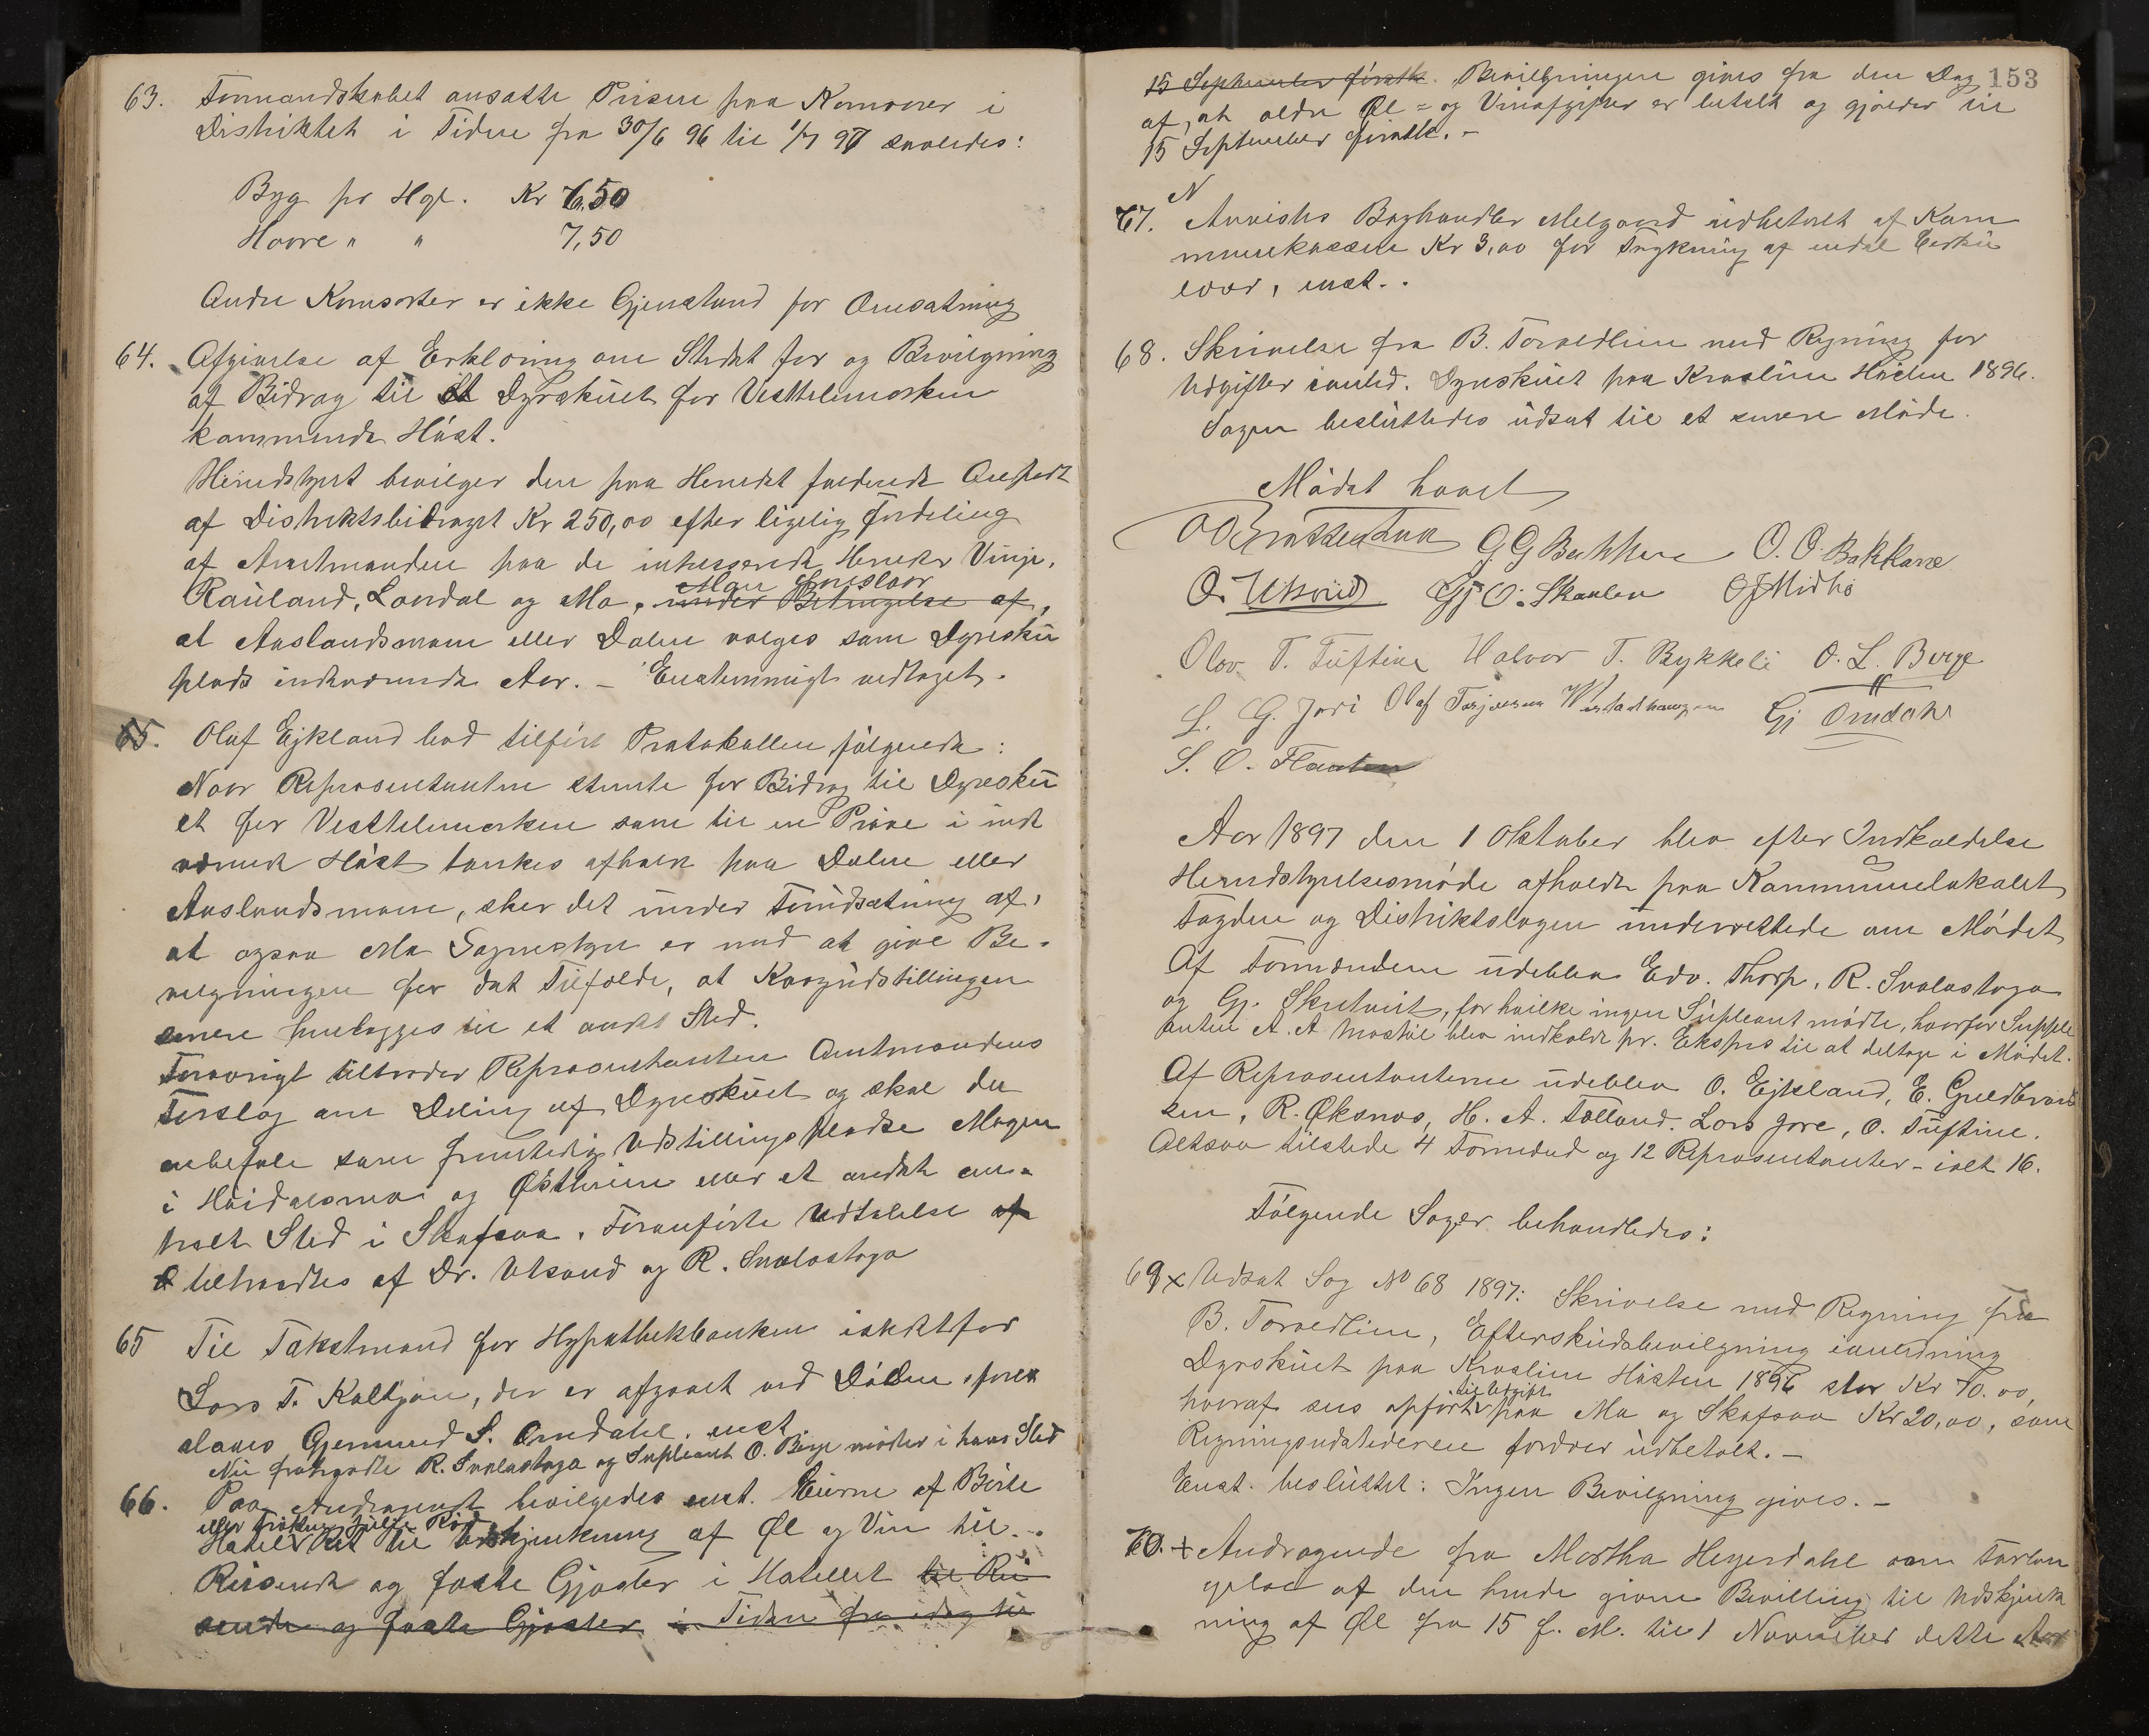 63. Formandskabet ansatte Prisen paa Kornvarer i
Distriktet i Tiden fra 30/6 96 til 1/7 97 saaledes:
Byg pr Hgl. Kr 6,50
Havre " " 7,50
Andre Kornsorter er ikke Gjenstand for Omsætning
64. Afgivelse af Erklæring om Stedet for og Bevilgning
af Bidrag til et Dyrskuet for Vesttelemarken
kommende Høst.
Herredstyret bevilger den paa Herredet faldende Anpart
af Distriktsbidraget Kr 250,00 efter ligelig Fordeling
af Amtmanden paa de interesserede Herreder Vinje,
Rauland, Laardal og Mo, under Betingelse af,
Man foreslaar
at Aaslandsmoen eller Dalen vælges som Dyrsku
plads indeværende Aar. – Enstemmigt vedtaget.
65. Oluf Ejkland bad tilført Protokollen følgende:
Naar Repræsentanten stemte for Bidrag til Dyresku
et for Vesttelemarken som til en Prøve i inde
værende Høst tænkes afholdt paa Dalen eller
Aaslandsmoen, sker det under Forudsætning af,
at ogsaa Mo Sognestyre er med at give Be-
vilgningen for det Tilfælde, at Kvægudstillingen
senere henlægges til et andet Sted.
Forøvrigt tiltræder Repræsentanten Amtmandens
Forslag om Deling af Dyreskuet og skal der
anbefale som fremtidig Udstillingspladse Mogen
i Høidalsmo og Østheim eller et andet cen-
tralt Sted i Skafsaa. Foranførte Udtalelse af
tiltraadtes af Dr. Utsond og R. Svalastoga
65 Til Takstmand for Hypothekbanken istedetfor
Lars T. Kaltjøn, der er afgaaet ved Døden, fore
slaaes Gjermund S. Omdahl. enst
Nu fratraadte R. Svalastoga og Supleant O. Berge møder i hans Sted
66. Paa Andragende bevilgedes enst. Eieren af Børte
eller Frøken Julie
Hotel Ret til Udskjænkning af Øl og Vin til
Reisende og faste Gjæster i Hotellet til Rei
sende og faste Gjæster i Tiden fra idag til
153
15 September førstk. Bevilgningen gives fra den Dag
af, at ældre Øl- og Vinafgifter er betalt og gjælder til
15 September førstk. –
N
67. Anvistes Boghandler Melgaard udbetalt af Kom
munekassen Kr 3,00 for Trykning af endel Cirku
lærer, enst.
68. Skrivelse fra B. Torvedlien med Regning for
Udgifter i anled. Dyrskuet paa Kroslien Høsten 1896.
Sagen besluttedes udsat til et senere Møde.
Mødet hævet
G G O. O. Bakkane
O. Utsond Gj O. Skaalen O J Midbø
Olav T. Tuftine Halvor T. Rykkeli O. L. Berge
L. G. Jori Olaf Torjersen Gj Omdahl
S. O. Flaaten
Aar 1897 den 1 Oktober blev efter Indkaldelse
Herredstyrelsesmøde afholdt paa Kommunelokalet
Fogden og Distriktslægen underrettede om Mødet
Af Formændene udeblev Edv. Thorp, R. Svalastoga
og Gj. Skretveit, for hvilke ingen Supleant mødte, hvorfor Supple
anten A. A Mostøl blev indkaldt pr. Ekspres til at deltage i Mødet.
Af Repræsentanterne udeblev O. Ejkland, E. Guldbrand
sen, R. Øksnes, H. A. Folland. Lars Jore, O. Tuftine.
Altsaa tilstede 4 Formænd og 12 Repræsentanter – ialt 16.
Følgende Sager behandledes:
69 x Udsat Sag No 68 1897: Skrivelse med Regning fra
B. Torvedlien, Efterskudsbevilgning i anledning
Dyrskuet paa Kroslien Høsten 1896 stor Kr 70.00,
til Udgift
hvoraf sees opført paa Mo og Skafsaa Kr 20,00, som
Regningsudstederen fordrer udbetalt. –
Enst. besluttet: Ingen Bevilgning gives. –
70. + Andragende fra Martha Heyerdahl om Forlæn
gelse af den hende givne Bevilling til Udskjænk
ning af Øl fra 15 f. M. til 1 November dette Aar